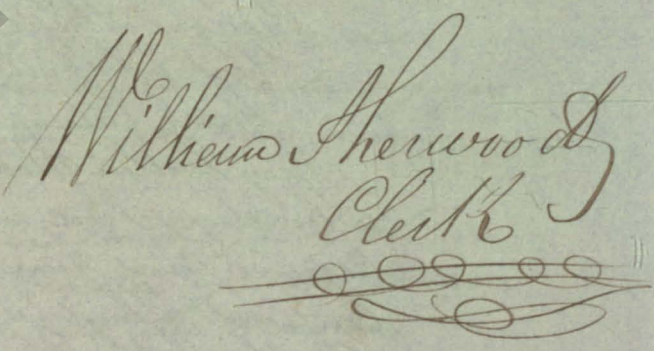 William Sherwood
Clerk